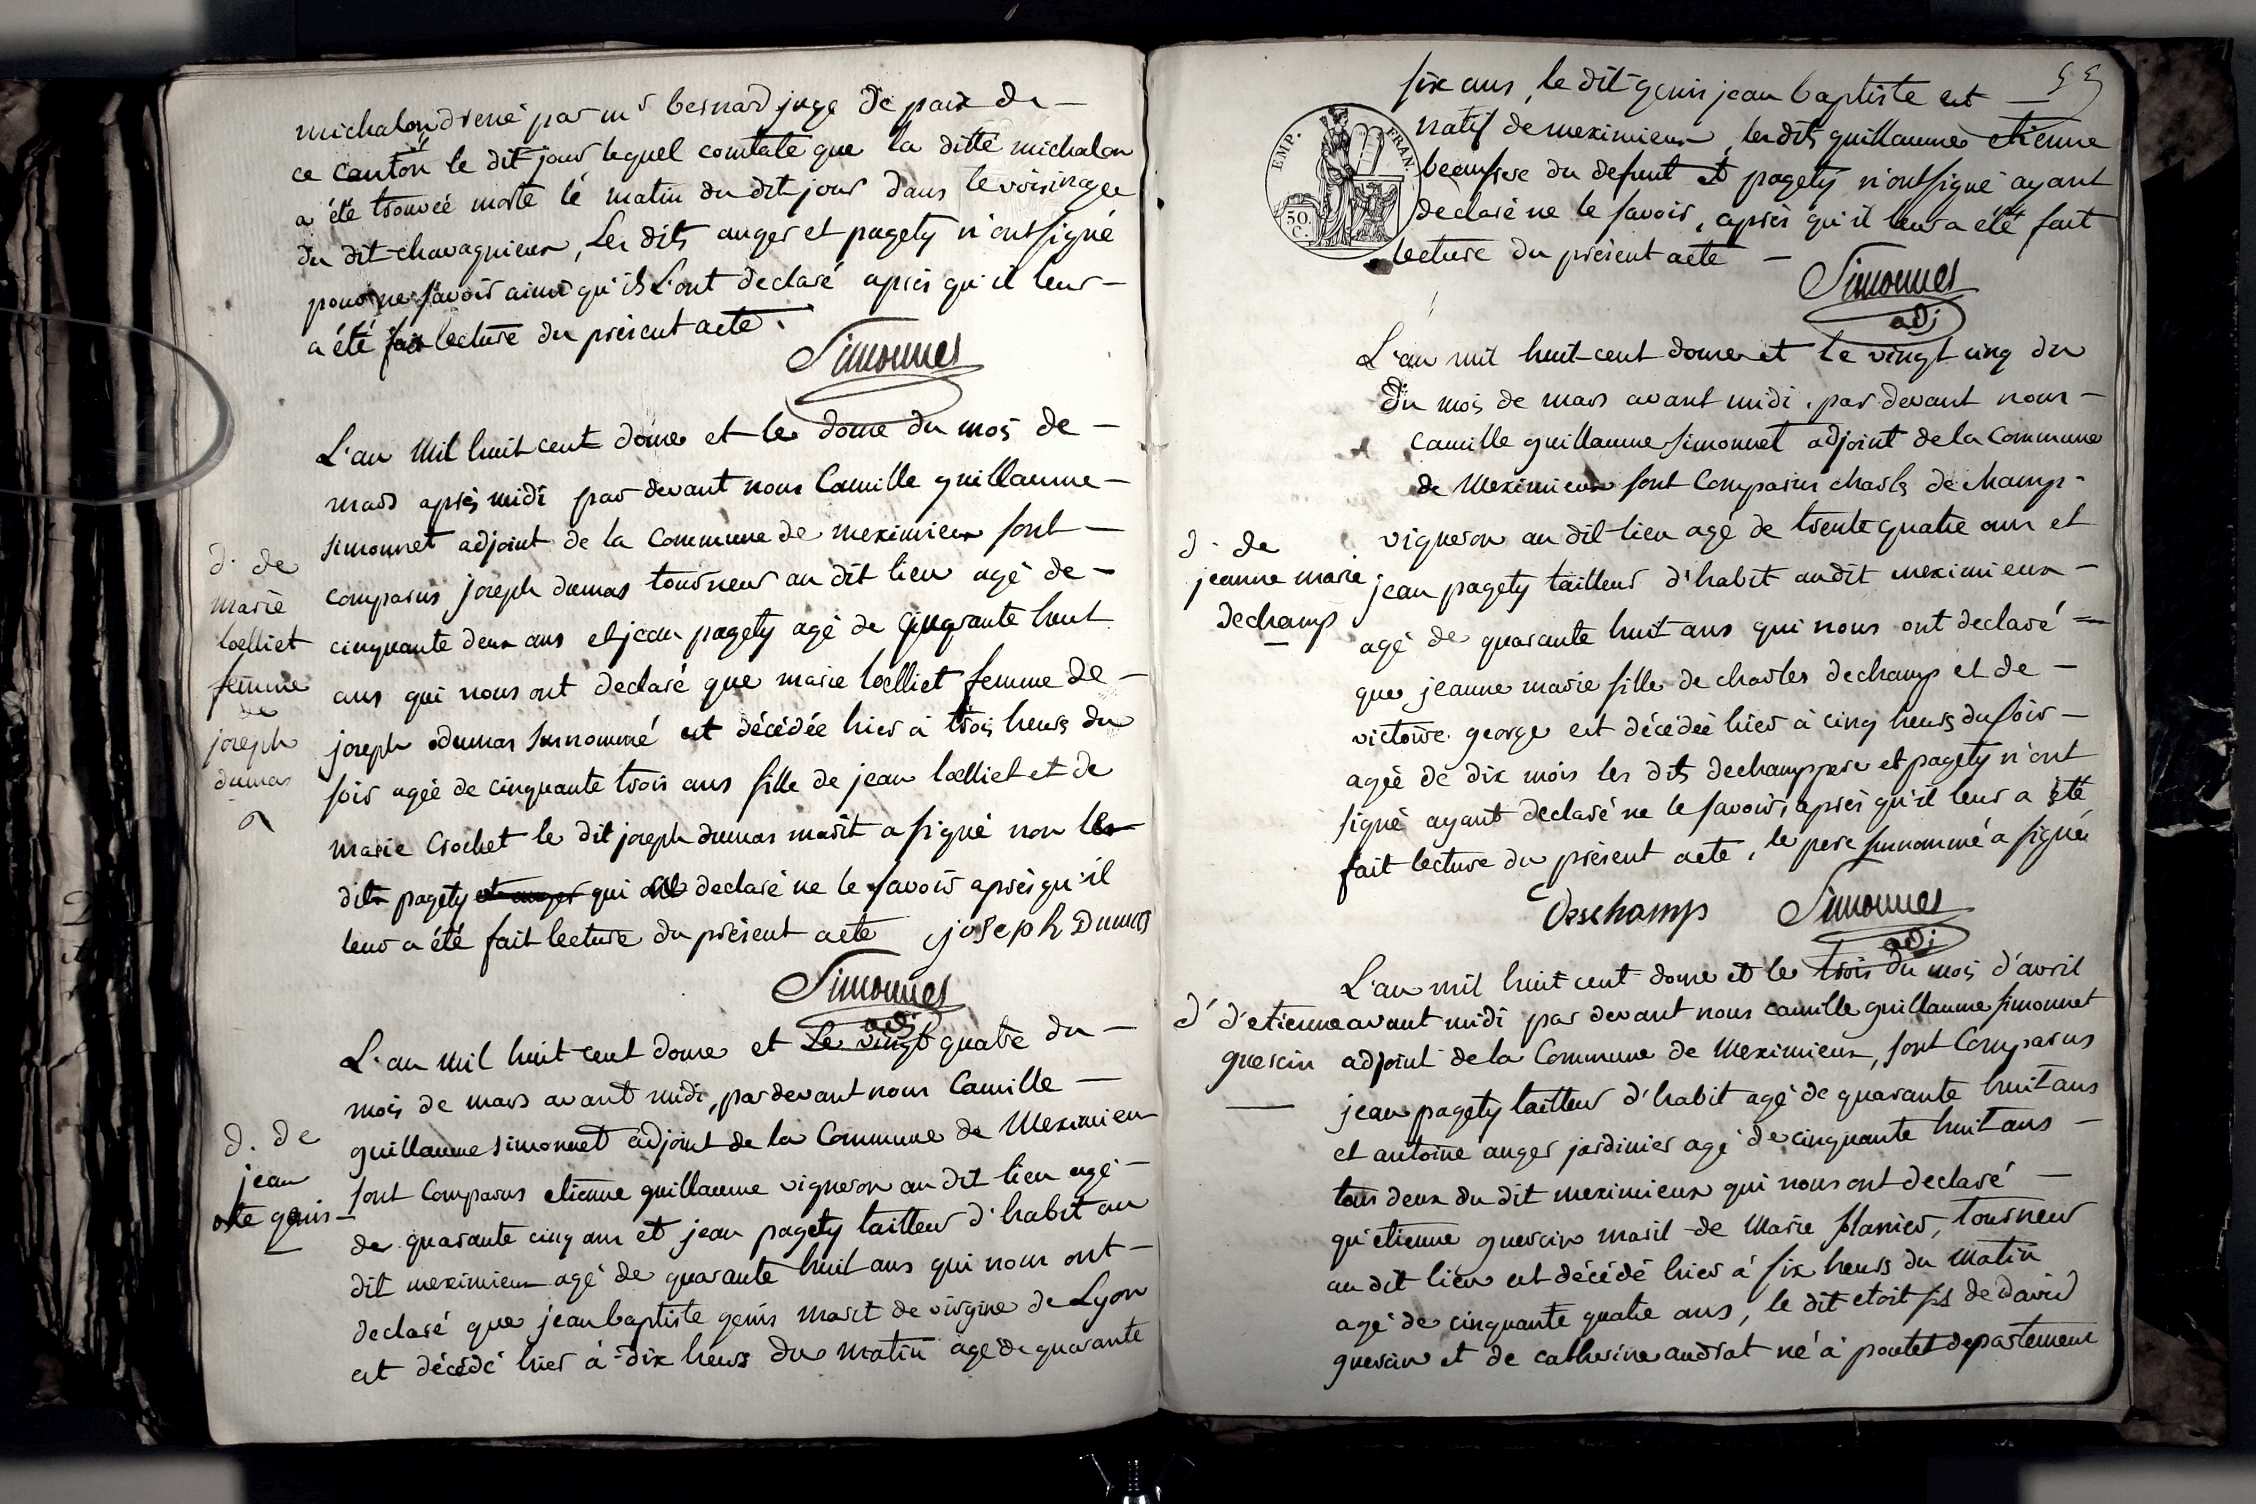 michalon dréné par mr bernard juge de paix de
ce canton le dit jour lequel constate que la ditte michalon
a été trouvéé morte le matin du dit jour dans le voisinage
du dit chavagnieux, les dits auger et pagety n'ont signé
pour ne savoir ainsi qu'ils l'ont declaré après qu'il leur
a été fait lecture du présent acte.
Simonnet
L'an mil huit cent douze et le douze du mois de
mars après midi par devant nous Camille guillaume
simonnet adjoint de la commune de meximieux sont
comparus joseph dumas tourneur au dit lieu agé de
cinquante deux ans et jean pagety agé de quarante huit
ans qui nous ont declaré que marie loelliet femme de
joseph dumas susnommé est décédée hier à trois heurs du
soir agéé de cinquante trois ans fille de jean loelliet et de
marie Crochet le dit joseph dumas marit a signé non le
dit pagety et auger qui a declaré ne le savoir après qu'il
leur a été fait lecture du présent acte joseph Dumas
Simonnet
adj
d. de
marie
loelliet
femme
de
joseph
dumas
L'an mil huit cent douze et le vingt quatre du
mois de mars avant midi, par devant nous Camille
guillaume simonnet adjoint de la Commune de Meximieux
sont Comparus etienne guillaume vigneron au dit lieu agé
de quarante cinq ans et jean pagety tailleur d'habit au
dit meximieux agé de quarante huit ans qui nous ont
declaré que jean baptiste genis marit de virgine de Lyon
est décédé hier à dix heurs du matin agé de quarante
d. de
jean
bte genis
55
six ans, le dit genis jean baptiste est
natif de meximieux, les dits guillaume etienne
beaufrere du defunt et pagety n'ont signé ayant
declaré ne le savoir, après qu'il leur a été fait
lecture du présent acte
EMP. FRAN.
50 C.
Simonnet
adj
L'an mil huit cent douze et le vingt cinq du
du mois de mars avant midi, par devant nous
Camille guillaume simonnet adjoint de la Commune
de Meximieux sont Comparus charles dechamp
vigneron au dit lieu agé de trente quatre ans et
jean pagety tailleur d'habit audit meximieux
agé de quarante huit ans qui nous ont declaré
que jeanne marie fille de charles dechamp et de
victoire george est décédéé hier à cinq heurs du soir
agéé de dix mois les dits dechamp pere et pagety n'ont
signé ayant declaré ne le savoir, après qu'il leur a été
fait lecture du présent acte, le pere susnommé a signé
Deschamp Simonnet
adj
d. de
jeanne marie
dechamp
L'an mil huit cent douze et le trois du mois d'avril
avant midi par devant nous camille guillaume simonnet
adjoint de la Commune de Meximieux, sont Comparus
jean pagety tailleur d'habit agé de quarante huit ans
et antoine auger jardinier agé de cinquante huit ans
tous deux du dit meximieux qui nous ont declaré
qu'etienne guercin marit de Marie planier, tourneur
au dit lieu est décédé hier à six heurs du matin
agé de cinquante quatre ans, le dit etoit fils de David
guercin et de catherine audrat né à poutet departement
d' d'etienne
guercin